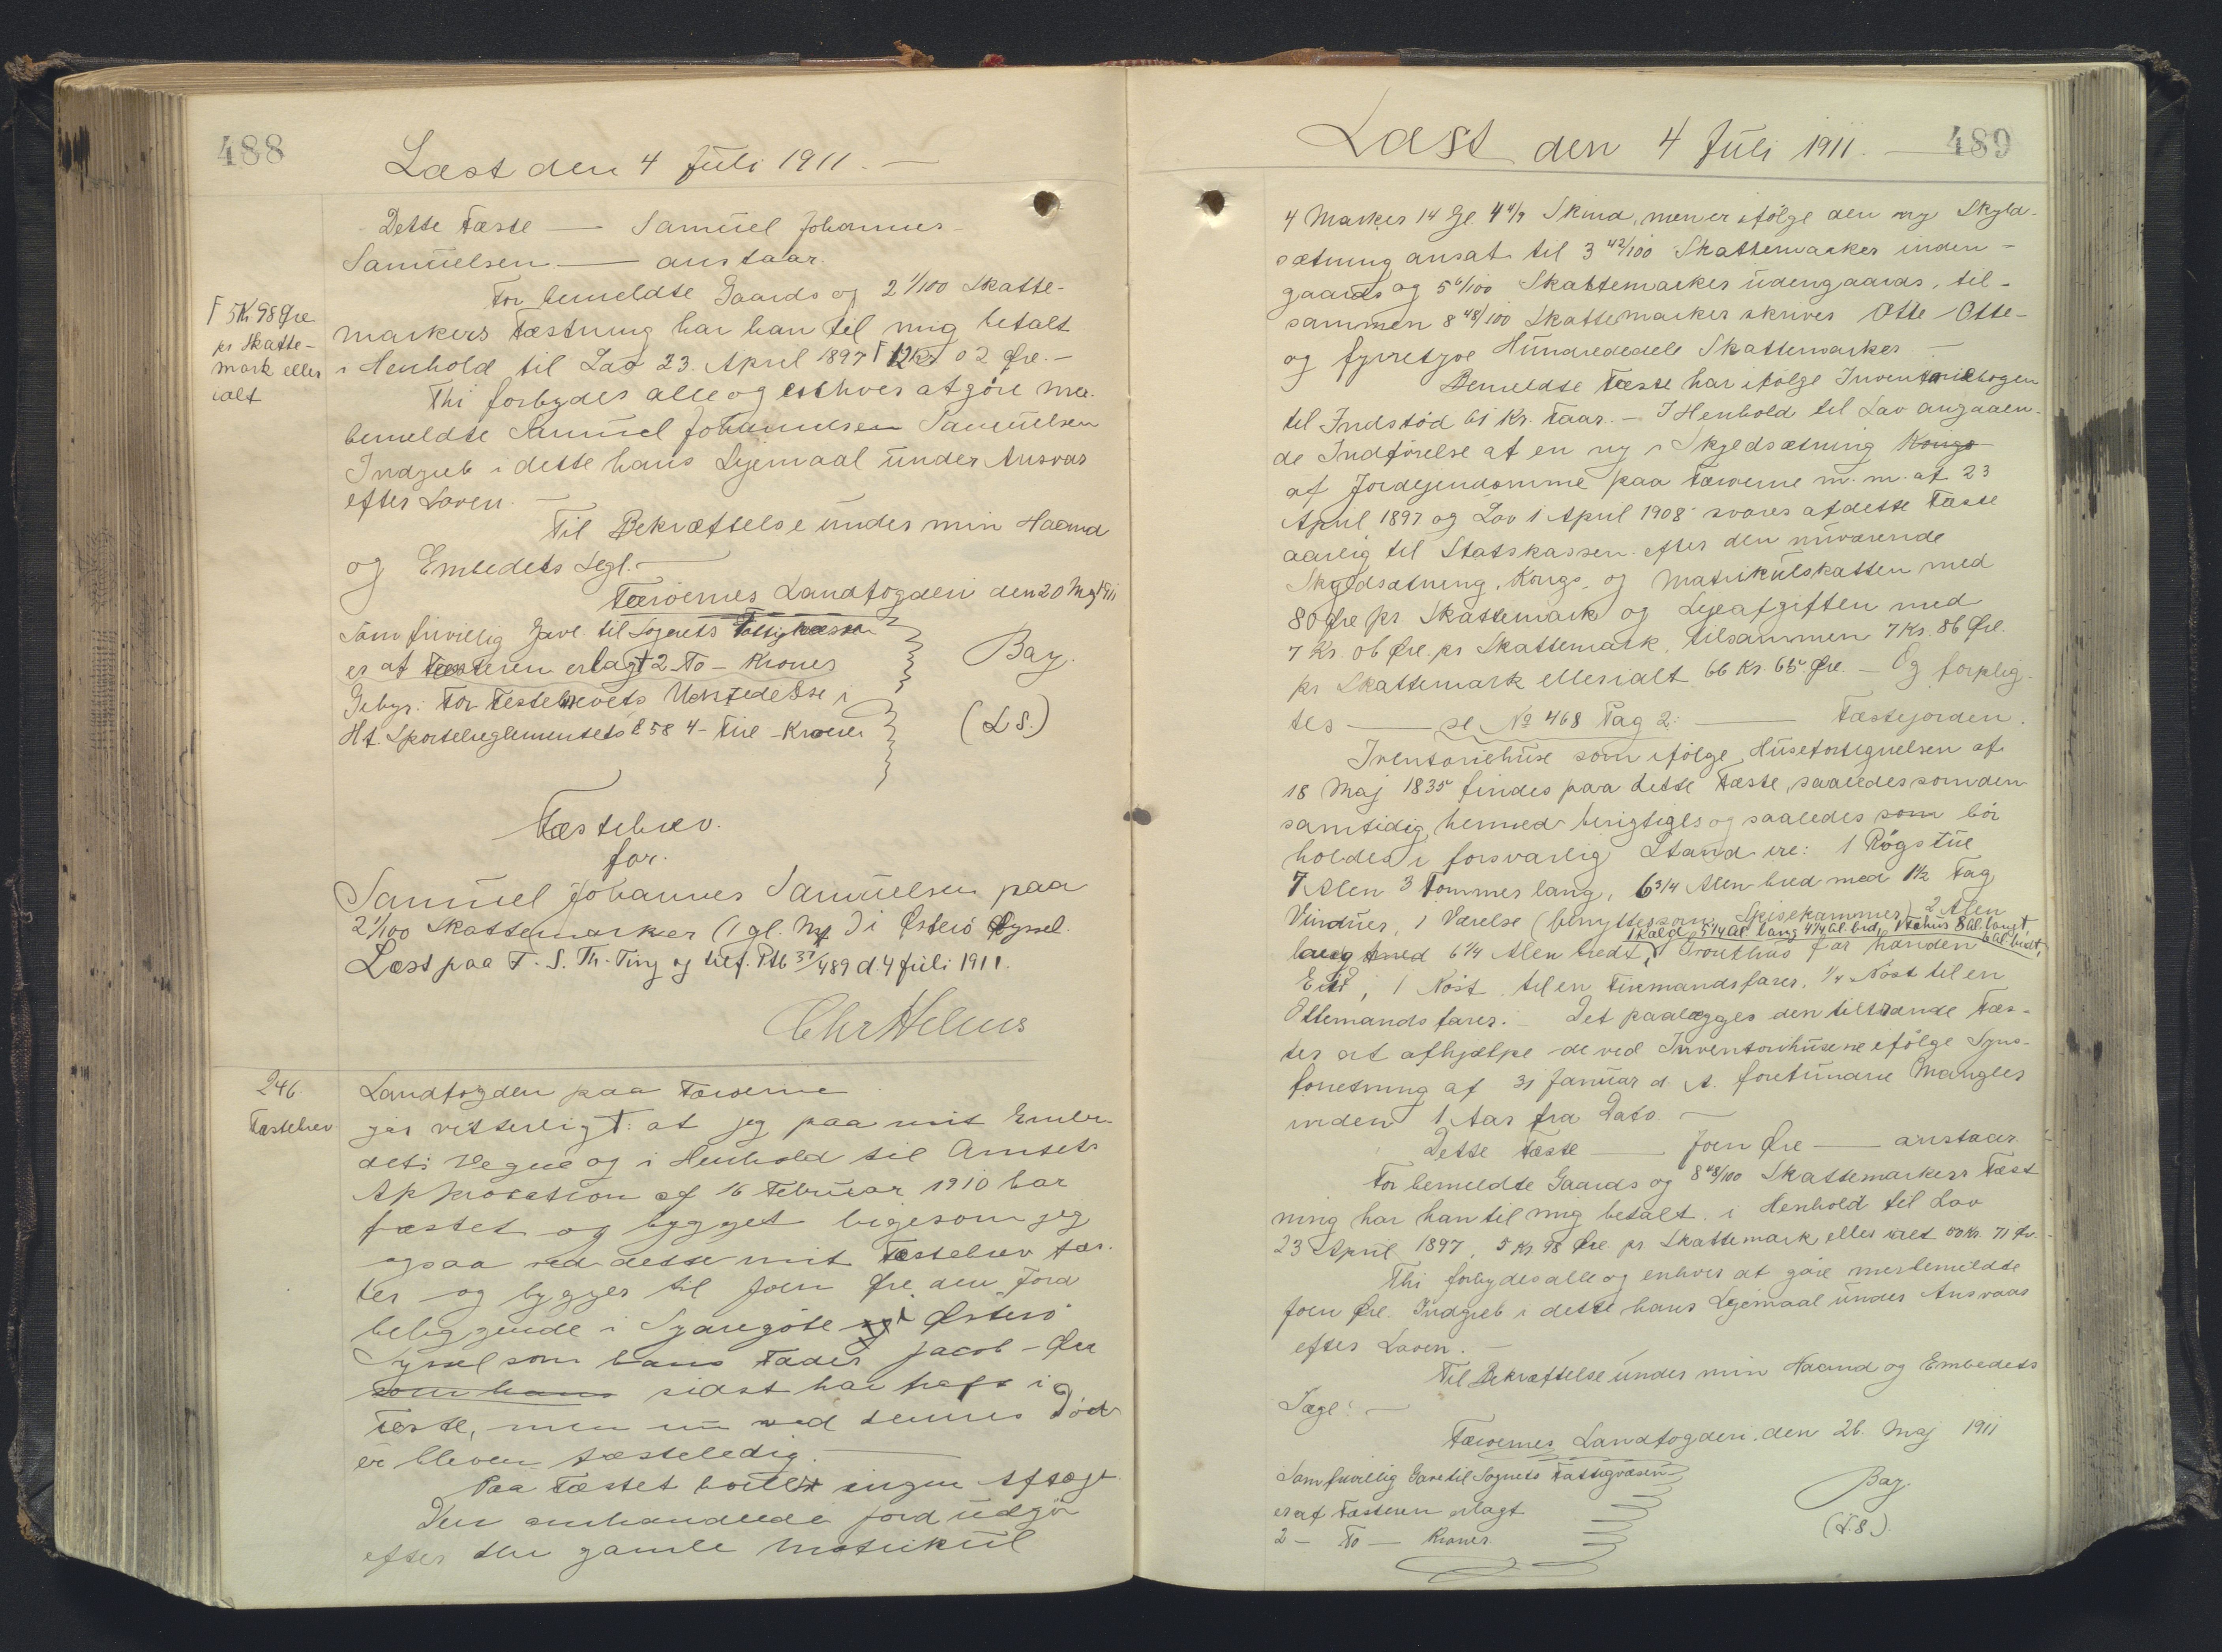 488
Læst den 4 Juli 1911.
Dette Fæste — Samuel Johannes
Samuelsen — anstaar.
For bemeldte Gaards og 2 1/100 Skatte-
markers Fæstning har han til mig betalt
i Henhold til Lov 23. April 1897 Γ 12 Kr 02 Øre. —
Γ 5 Kr 98 Øre
pr Skatte-
mark eller
ialt
Thi forbydes alle og enhver at göre mer-
bemeldte Samuel Johannesen Samuelsen
Indgreb i dette hans Lejemaal under Ansvar
efter Loven. —
Til Bekræftelse under min Haand
og Embedets Segl. —
Færoernes Landfogderi den 20 Maj 1911
Som frivillig Gave til Sognets Fattigkasse
er af Fæsteren erlagt 2 To — Kroner
Gebyr: For Festebrevets Udstedelse i
Hf. Sportelreglementets § 58 4 - Fire - Kroner
Bay.
(L S.)
Fæstebrev.
for.
Samuel Johannes Samuelsen paa
2 1/100 Skattemarker (1 gl. Mk) i Österö Syssel.
Læst paa F. S. Th. Ting og tilf. Ptb 37/489 d. 4 Juli 1911.
Chr Helms
246
Fæstebrev
Landfogden paa Færoerne
gör vitterligt: at jeg paa mit Embe-
dets Vegne og i Henhold til Amtets
Approbation af 16 Februar 1910 har
fæstet og bygget ligesom jeg
ogsaa ved dette mit Fæstebrev fæs-
ter og bygger til Joen Øre den Jord
beliggende i Syaregöte i Österö
Syssel som hans Fader Jacob - Øre
som hans sidst har haft i
Feste, men nu ved dennes Död
er bleven fæsteledig. —
Paa Fæstet hviler ingen Aftægt
Den omhandlede Jord udgör
efter den gamle Matrikul
489
Læst den 4 Juli 1911. —
4 Marker 14 Gl. 4 4/9 Skind, men er ifölge den ny Skyld-
sætning ansat til 3 42/100 Skattemarker inden-
gaards og 5 6/100 Skattemarker udengaards, til-
sammen 8 48/100 Skattemarker skriver Otte Otte-
og fyrretyve Hundrededele Skattemarker —
Bemeldte Fæste har ifölge Inventariebogen
til Indstöd 61 Kr. Faar. — I Henhold til Lov angaaen-
de Indförelse af en ny Skyldsætning Kongs
af Jordejendomme paa Færoerne m. m. af 23
April 1897 og Lov 1 April 1908 svares af dette Fæste
aarlig til Statskassen efter den nuværende
Skyldsætning, Kongs- og Matrikulskatten med
80 Øre pr. Skattemark og Lejeafgiften med
7 Kr. 06 Øre. pr Skattemark, tilsammen 7 Kr. 86 Øre.
pr Skattemark eller ialt 66 Kr. 65 Øre. — Og forplig-
tes — se No 468 Pag 2: — Fæstejorden.
Inventoriehuse som ifölge Husefortegnelsen af
18 Maj 1835 findes paa dette Fæste, saaledes som den
samtidig hermed berigtiges og saaledes som bör
holdes i forsvarlig Stand ere: 1 Rögstue
7 Alen 3 Tommer lang, 6 3/4 Alen bred med 1 1/2 Fag
Vinduer, 1 Værelse (benyttes som Spisekammer) 2 Alen
1 Kælder 5 1/4 Al. lang 4 1/4 Al. bred, 1 Fæhus 8 Al. langt
6 Al. bredt
lang med 6 1/4 Alen bredt, 1 Grouthus far haanden
1 Nöst til en Firemandsfarer, 1/4 Nöst til en
Ottemandsfarer. — Det paalægges den tiltrædende Fæs-
ter at afhjælpe de ved Inventoriehusene ifölge Syns-
forretning af 31 Januar d. A. forefundne Mangler
inden 1 Aar fra Dato. —
Dette Fæste — Joen Øre — anstaar.
For bemeldte Gaards og 8 48/100 Skattemarkers Fæst
ning har han til mig betalt i Henhold til Lov
23 April 1897, 5 Kr. 98 Øre pr. Skattemark eller ialt 50 Kr. 71 Ør.
Thi forbydes alle og enhver at göre merbemeldte
Joen Øre. Indgreb i dette hans Lejemaal under Ansvaar
efter Loven. —
Til Bekræftelse under min Haand og Embedets
Segl. —
Færoernes Landfogderi, den 26. Maj 1911
Som frivillig Gave til Sognets Fattigvæsen
er af Fæsteren erlagt
2 — To — Kroner.
Bay.
(L.S.).